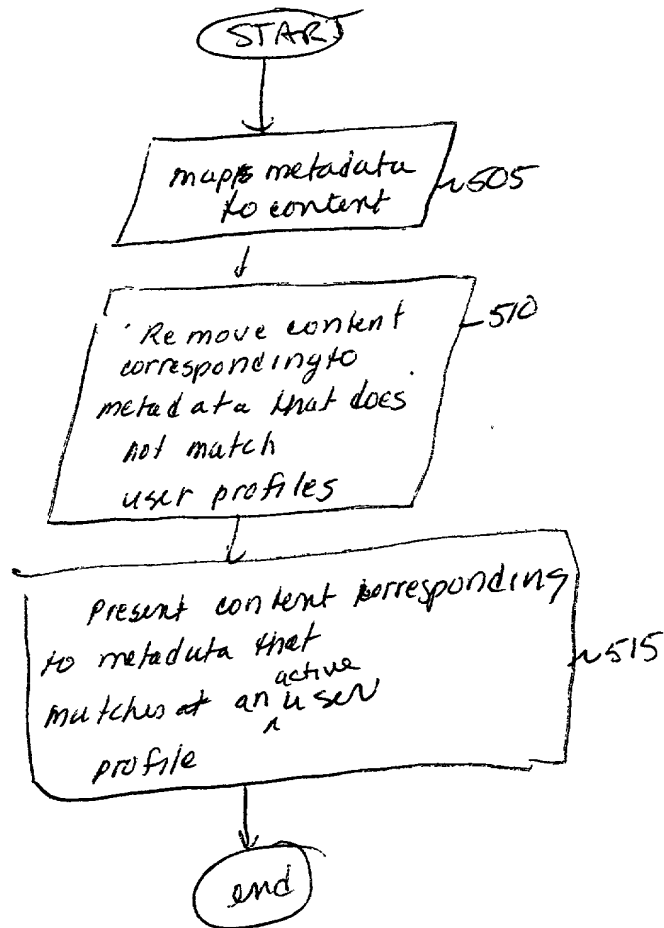 START
maps metadata
to content
505
Remove content
corresponding to
metadata that does
not match
user profiles
510
Present content corresponding
to metadata that
active
matches an user
profile
515
end